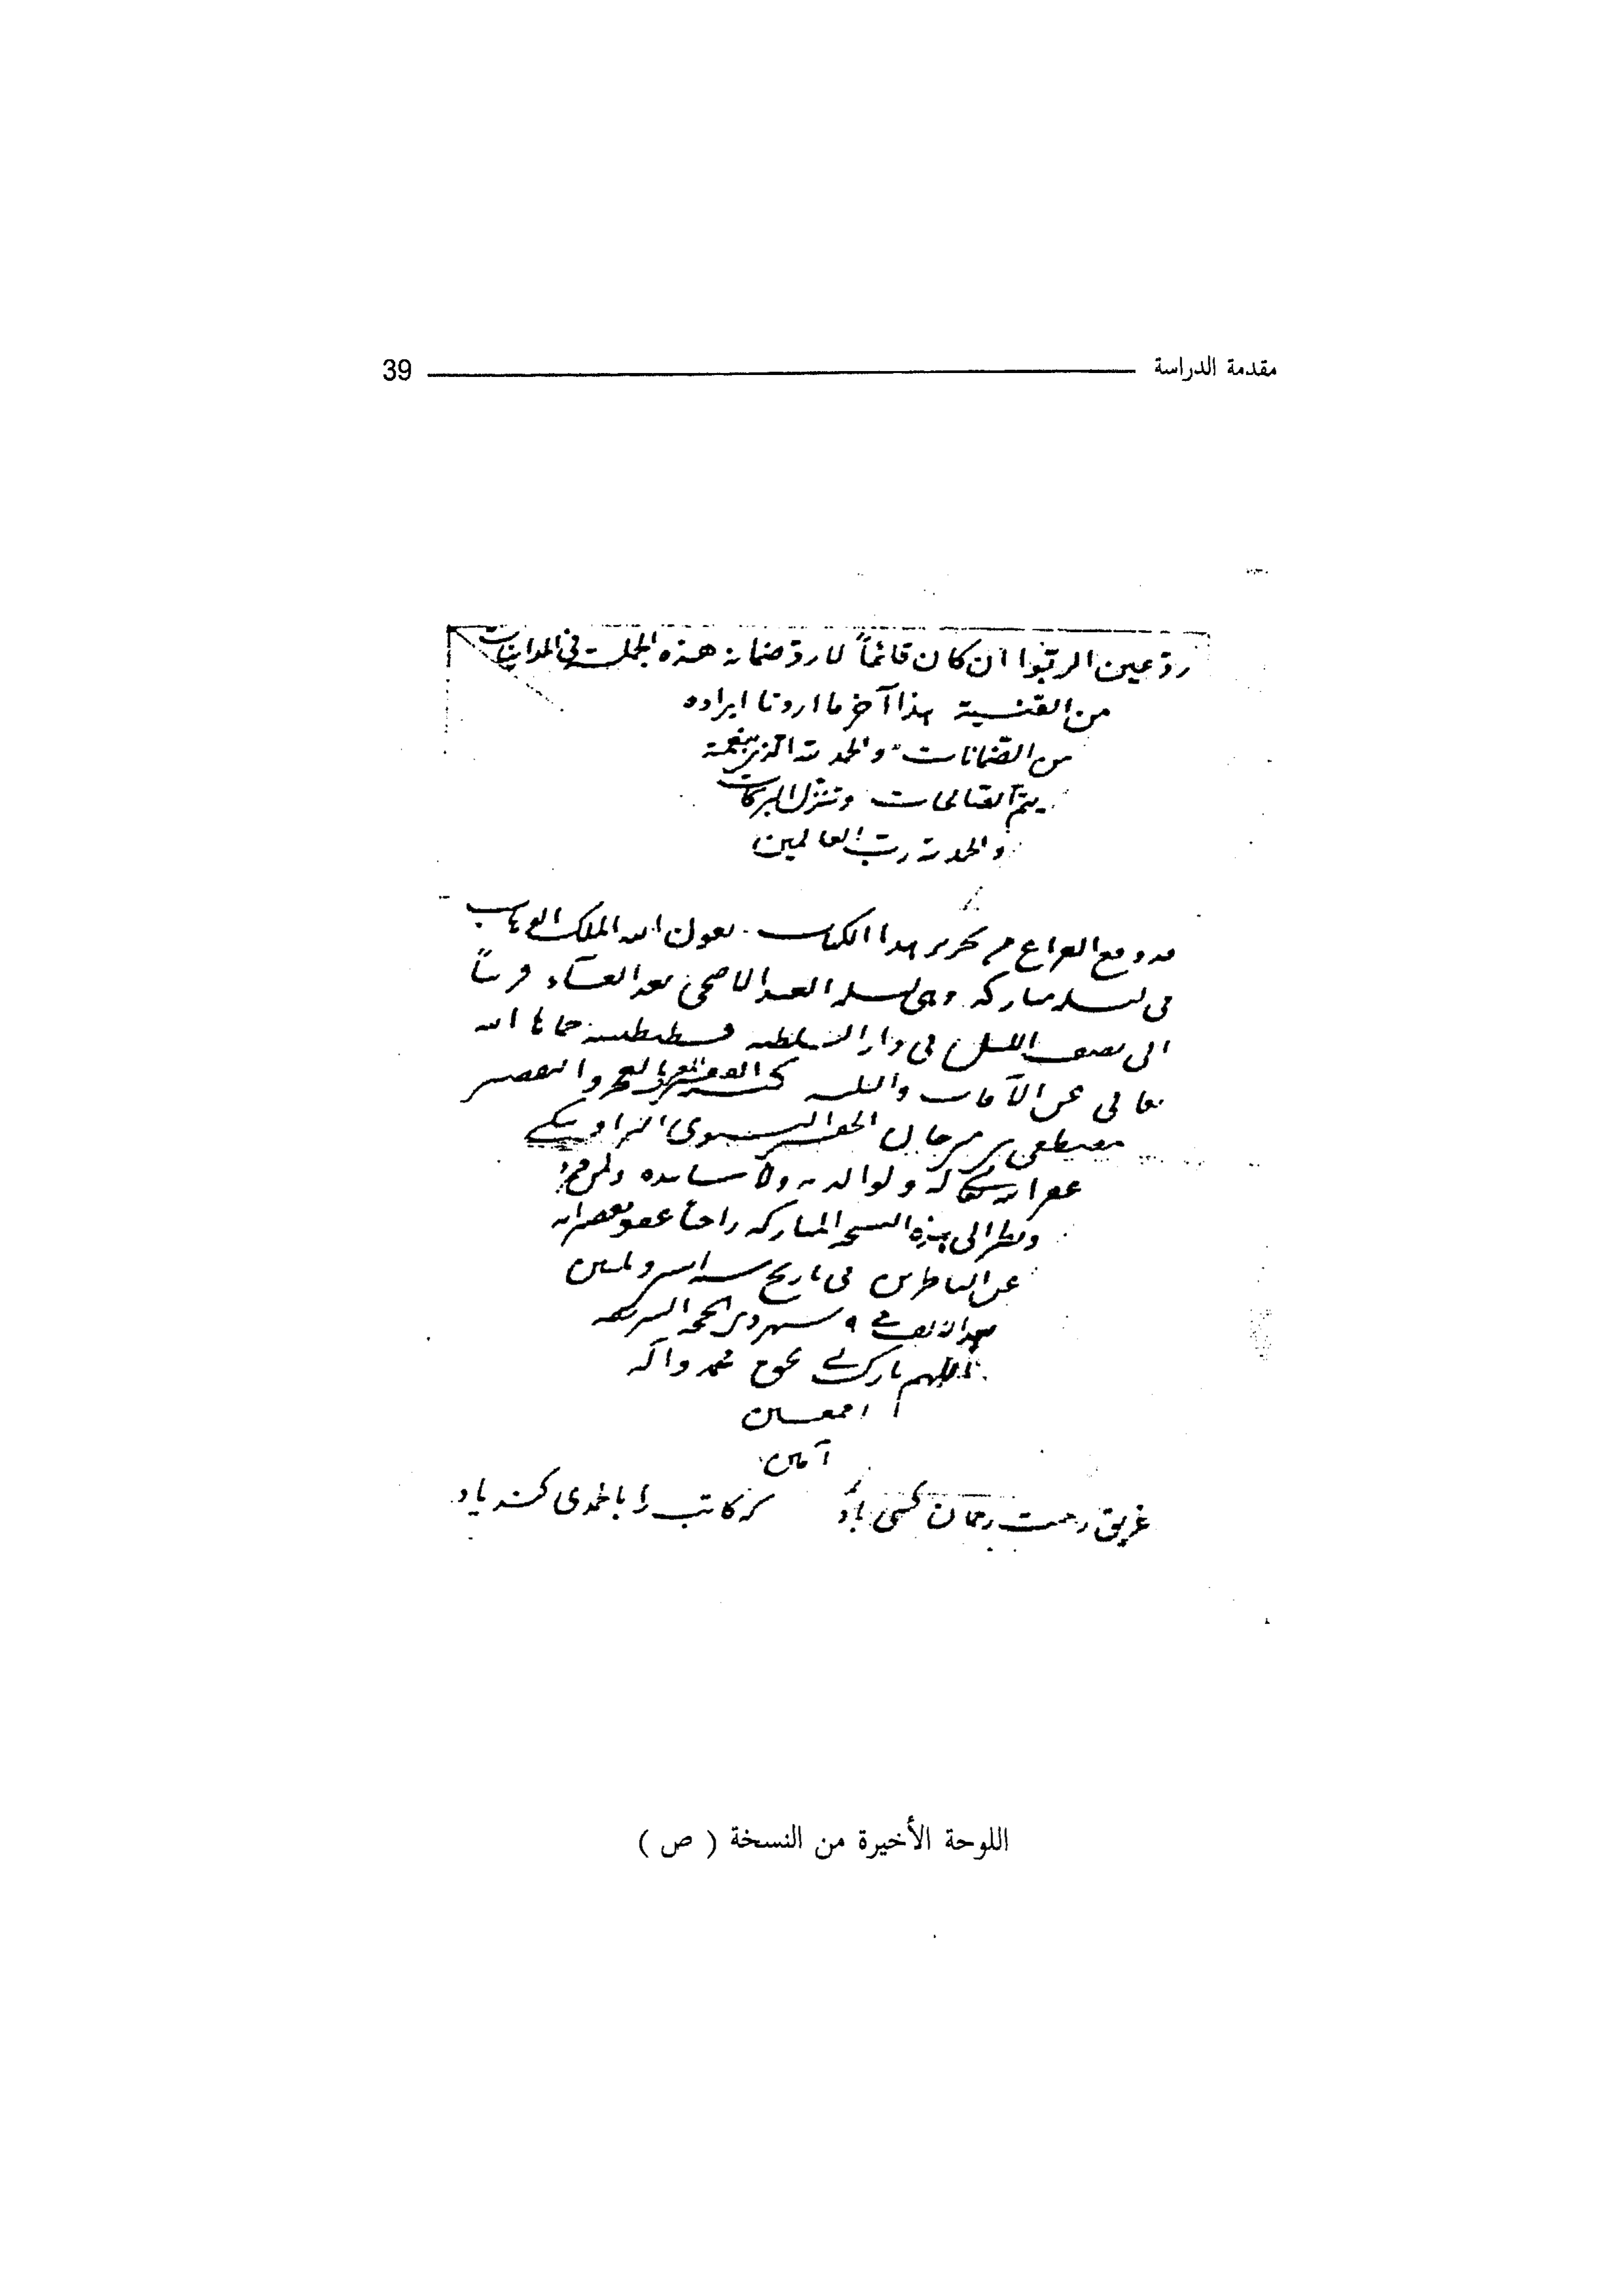 مقدمة الدراسة 39
رد عين الربوا ان كان قائماً لا رد ضمانه هذه الجملة في المداينات
من القنية هذا آخر ما اردنا ايراده
من الضمانات والحمد لله الذي بنعمته
يتم الصالحات وتنزل البركات
والحمد لله رب العالمين
قد وقع الفراغ من تحرير هذا الكتاب بعون الله الملك الوهاب
في ليلة مباركة وهي ليلة العيد الاضحى بعد العشاء قريباً
الى نصف الليل في دار السلطنة قسطنطينية حماها الله
تعالى عن الآفات والبلية كتبه الفقير المقر بالعجز والتقصير
مصطفى بن مرجان الحقير
غفر الله له ولوالديه ولأساتيذه ولمن قرأ
ونظر الى هذه النسخة المباركة راجياً عفو تقصيراته
عن الناظرين في تاريخ سنة اثنى وثلثين
بعد الالف في ٩ شهر ذي الحجة الشريفة
اللهم بارك لي بحق محمد وآله
اجمعين
آمين
غريق رحمت رحمان كسى باد كه كاتب را بالحمدى كند ياد
اللوحة الأخيرة من النسخة ( ص )